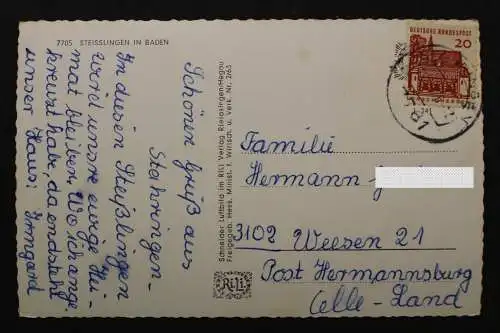 7705 STEISSLINGEN IN BADEN
Schönen Gruß aus
Stahringen-
In diesen Steißlingen
wird unsere ewige Hei-
mat bleiben. Wo ich ange-
kreuzt habe, da endsteht
unser Haus: Irmgard
Schneider Luftbild im RiLi Verlag, Rielasingen-Hegau
Freigegeb. Hess. Minist. f. Wirtsch. u. Verk. Nr. 2/63
RiLi
DEUTSCHE BUNDESPOST
20
Familie
Hermann
3102 Weesen 21
Post Hermannsburg
Celle-Land